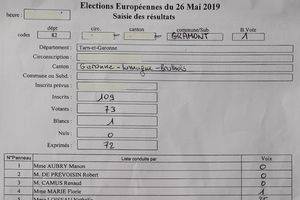 Elections Européennes du 26 Mai 2019
Saisie des résultats
heure :
dépt circ. canton commune/Sub. B.Vote
codes 82 GRAMONT 1
Département : Tarn-et-Garonne
Circonscription :
Canton Garonne - Lomagne - Brulhois
Commune ou Subd.
Inscrits prévus :
Inscrits : 109
Votants : 73
Blancs : 1
Nuls : 0
Exprimés : 72
N°Panneau Liste conduite par Voix
1 Mme AUBRY Manon 0
2 M. DE PREVOISIN Robert 0
3 M. CAMUS Renaud 0
4 Mme MARIE Florie 1
Mme LOISEAU Nathalie